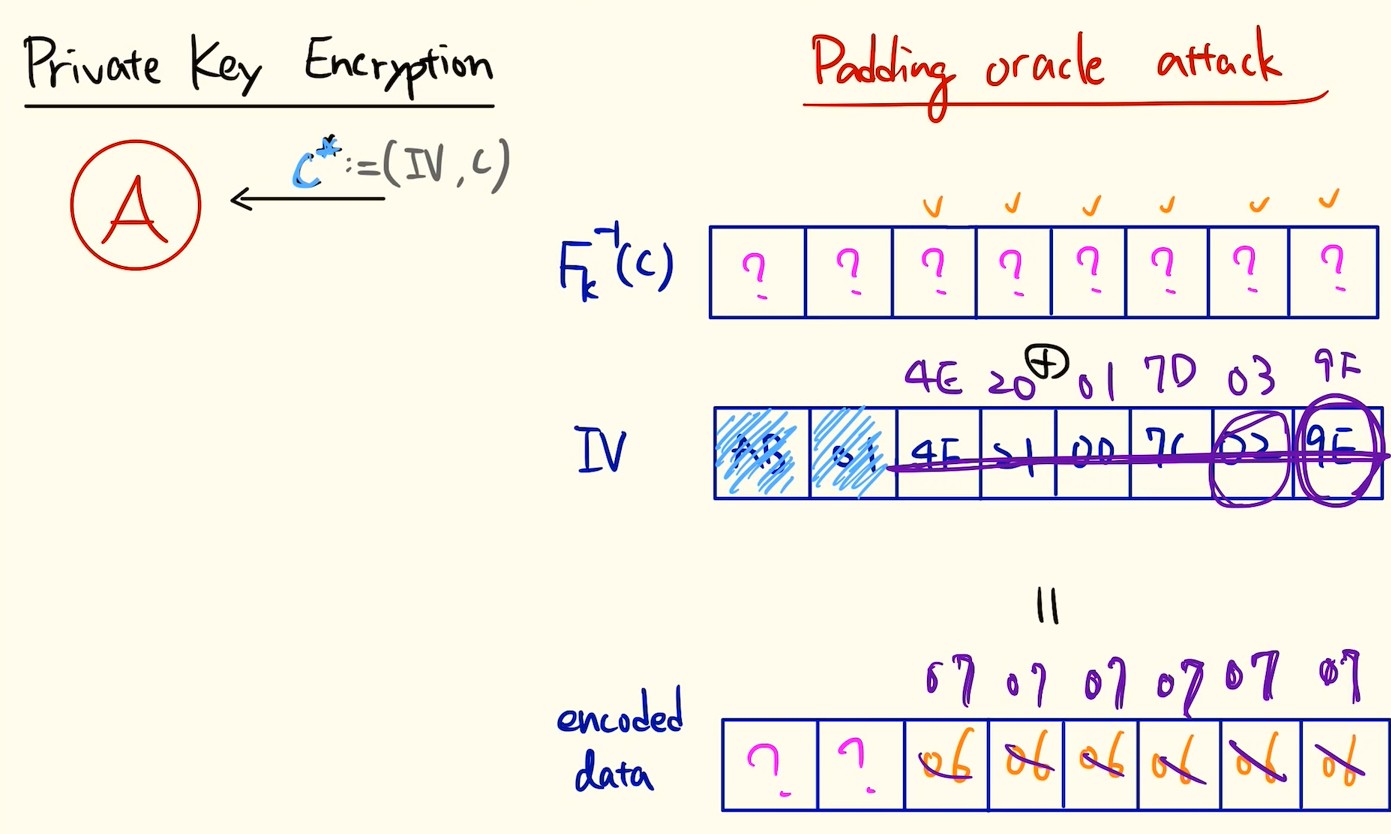 Private Key Encryption
Padding oracle attack
A
C* := (IV, C)
✓ ✓ ✓ ✓ ✓ ✓
F_k^{-1}(C)
? ? ? ? ? ? ? ?
⊕
4E 20 01 7D 03 9F
IV
4F 21 00 7C 02 9E
=
07 07 07 07 07 07
encoded
data
? ? 06 06 06 06 06 06